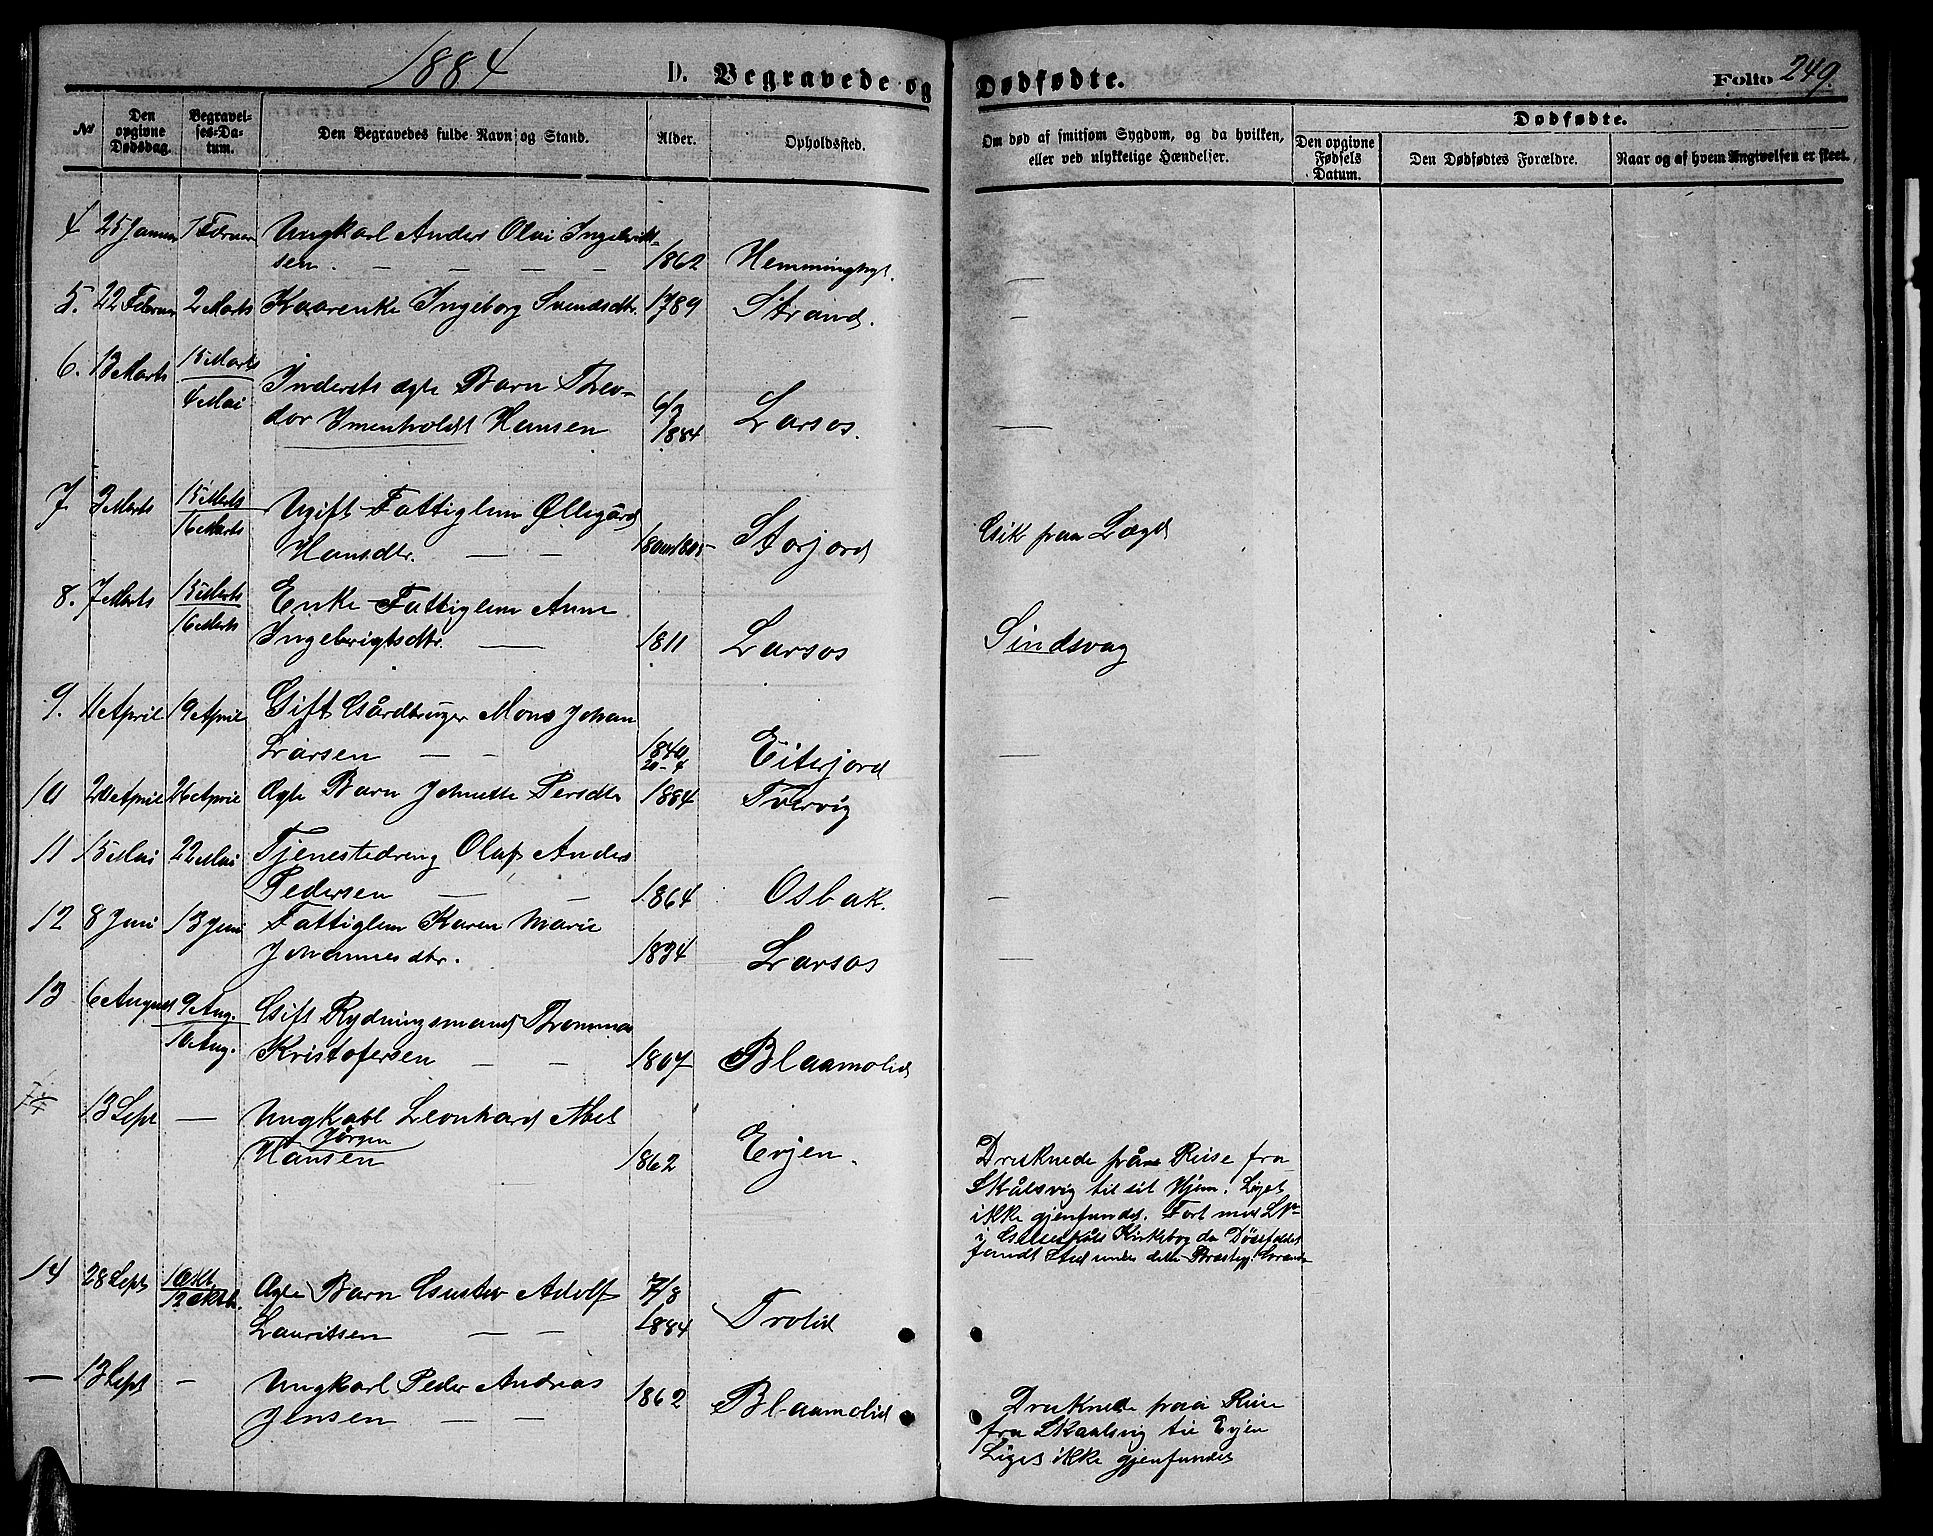 1884 D. Begravede og Dødfødte. Folio 249.
№ Den opgivne Dødsdag. Begravelses-Datum. Den Begravedes fulde Navn og Stand. Alder. Opholdssted. Om død af smitsom Sygdom, og da hvilken, eller ved ulykkelige Hændelser. Dødfødte. Den opgivne Fødsels Datum. Den Dødfødtes Forældre. Naar og af hvem Angivelsen er skeet.
4 25 Januar 1 Februar Ungkarl Anders Olai Ingebrikt-
sen. — — — — 1862 Hemminghyt. —
5. 22 Februar 2 Marts Kaarenke Ingeborg Svendsdtr. 1789 Strand. —
6. 13 Marts 15 Marts
4 Mai Inderets ægte Barn Theo-
dor Imenholdt Hansen 6/3 1884 Larsos. —
7 3 Marts 15 Marts
16 Marts Ugift Fattiglem Øllegård
Hansdtr. — — Storjord Gik paa Lægd
8. 7 Marts 15 Marts
16 Marts Enke Fattiglem Anne
Ingebrigtsdtr. — 1811 Larsos Sindsvag
9. 11 April 19 April Gift Gårdbruger Mons Johan
Larsen — — 1840 Eiterjord —
10 20 April 26 April Ægte Barn Johnette Persdtr 20-4 1884 Tvervig
11 15 Mai 22 Mai Tjenestedreng Olaf Anders
Pedersen — — 1864 Osbak. —
12 8 Juni 13 Juni Fattiglem Karen Marie
Johannesdtr. 1834 Larsos —
13 6 August 9 Aug.
10 Aug. Gift Rydningsmand Thommas
Kristofersen — — 1807 Blaamolid
14 13 Sept — Ungkarl Leonhard Abel
Jørgen
Hansen 1862 Evjen. Druknede på Reise fra
Skålsvig til sit Hjem. Liget
ikke gjenfundet. Fort med LNr
i Gilleskåls Kirkebog da Dødsfaldet
fandt Sted under dette Præstegj.
14 28 Sept 10 Okt
12 Oktb. Ægte Barn Gustav Adolf
Lauritsen — — 7/8 1884 Trolid
— 13 Sept — Ungkarl Peder Andreas
Jensen — — 1862 Blaamolid Druknede paa Reise
fra Skaalsvig til Evjen
Liget ikke gjenfundet